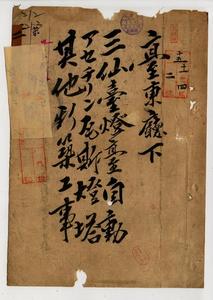 臺東廳下
三仙臺燈臺自動
アセチリン瓦斯燈塔
其他新築工事